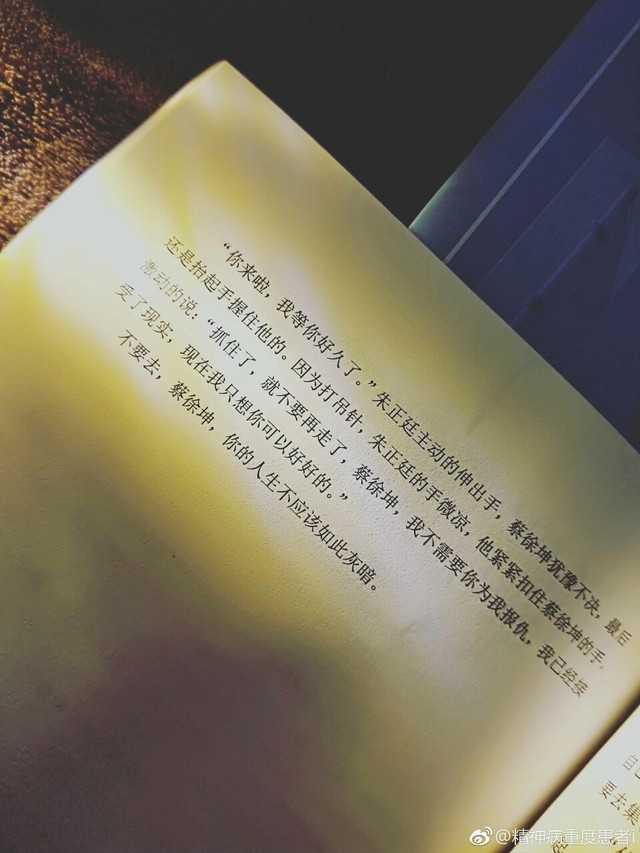 “你来啦，我等你好久了。”朱正廷主动的伸出手，蔡徐坤犹豫不决，最后
还是抬起手握住他的。因为打吊针，朱正廷的手微凉，他紧紧扣住蔡徐坤的手，
激动的说：“抓住了，就不要再走了，蔡徐坤，我不需要你为我报仇，我已经接
受了现实，现在我只想你可以好好的。”
不要去，蔡徐坤，你的人生不应该如此灰暗。
自
要去集
@精神病重度患者i